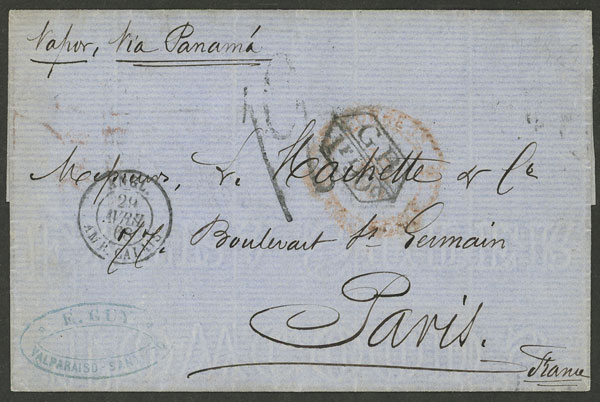 Vapor, Via Panamá
G.B.
Messieurs, L. Hachette & Cie
ANGL.
29
AVRIL
AMB. CALAIS
77. Boulevart St Germain
Paris.
France
E. GUY
VALPARAISO - SANT